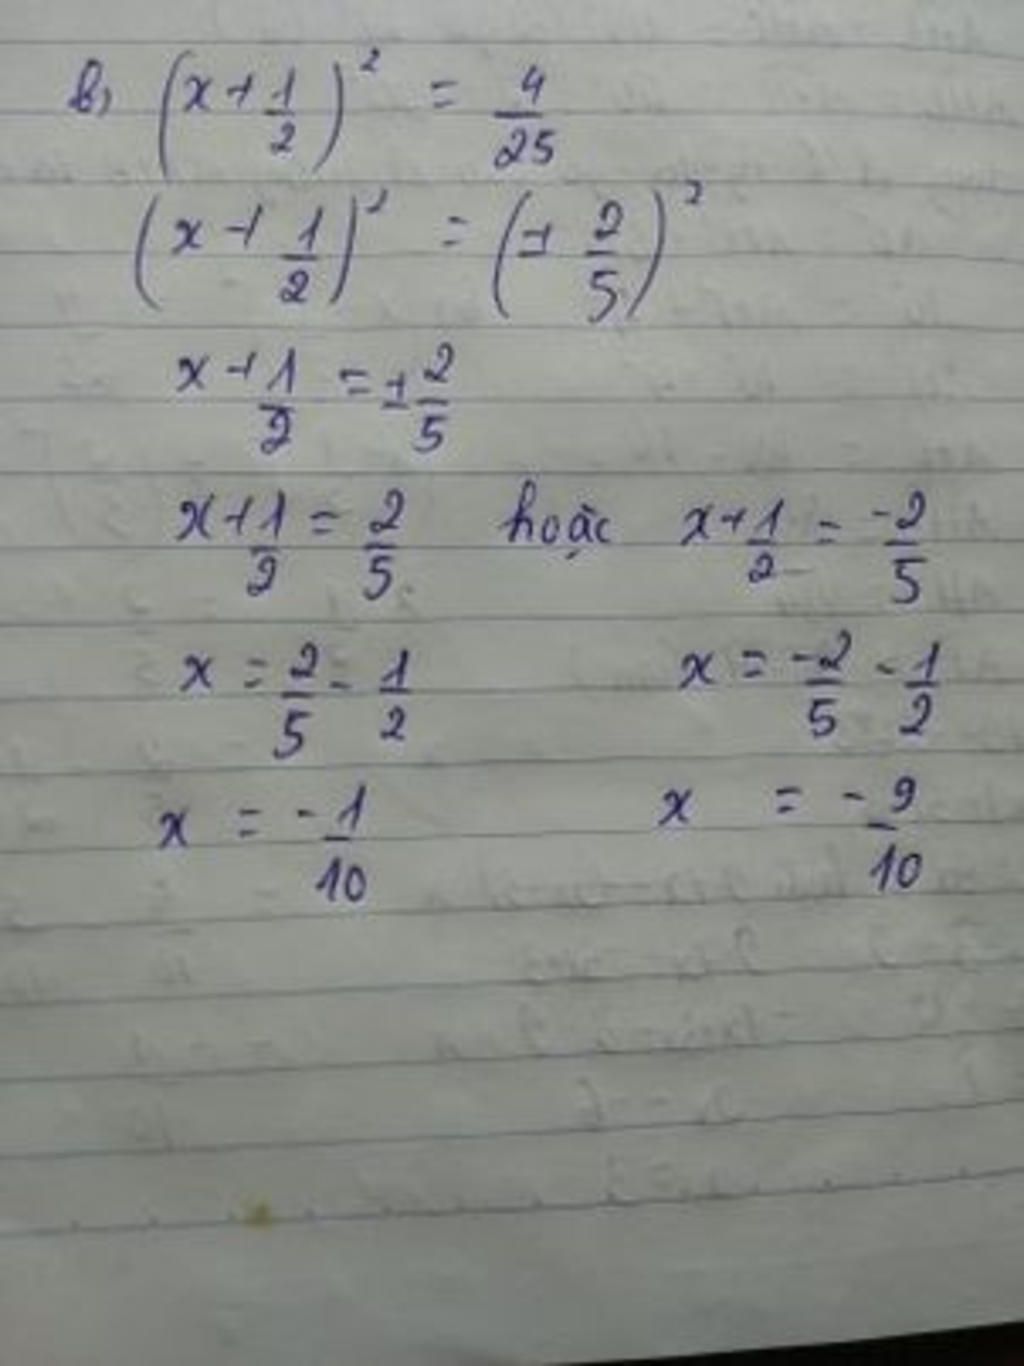 b, (x + 1/2)² = 4/25
(x + 1/2)² = (± 2/5)²
x + 1/2 = ± 2/5
x + 1/2 = 2/5 hoặc x + 1/2 = -2/5
x = 2/5 - 1/2 x = -2/5 - 1/2
x = -1/10 x = -9/10